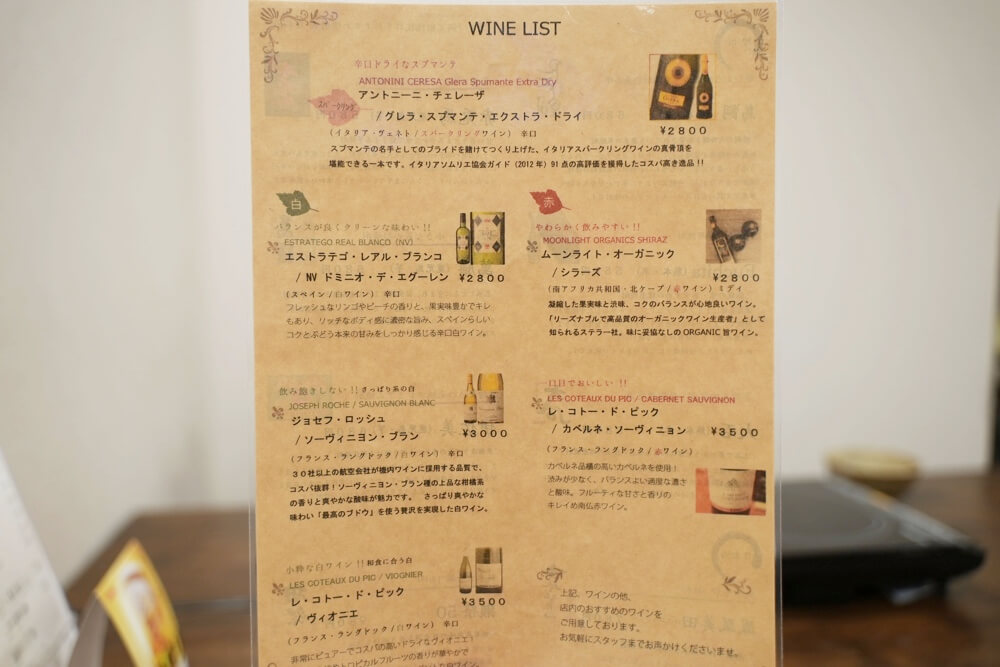 WINE LIST
辛口ドライなスプマンテ
ANTONINI CERESA Glera Spumante Extra Dry
スパークリング
アントニーニ・チェレーザ
/ グレラ・スプマンテ・エクストラ・ドライ
¥2800
(イタリア・ヴェネト / スパークリングワイン) 辛口
スプマンテの名手としてのプライドを賭けてつくり上げた、イタリアスパークリングワインの真骨頂を
堪能できる一本です。イタリアソムリエ協会ガイド (2012 年) 91 点の高評価を獲得したコスパ高き逸品 !!
白
バランスが良くクリーンな味わい !!
ESTRATEGO REAL BLANCO (NV)
エストラテゴ・レアル・ブランコ
/ NV ドミニオ・デ・エグーレン
¥2800
(スペイン / 白ワイン) 辛口
フレッシュなリンゴやピーチの香りと、果実味豊かでキレ
もあり、リッチなボディ感に濃密な旨み、スペインらしい
コクとぶどう本来の甘みをしっかり感じる辛口白ワイン。
飲み飽きしない !! さっぱり系の白
JOSEPH ROCHE / SAUVIGNON BLANC
ジョセフ・ロッシュ
/ ソーヴィニヨン・ブラン
¥3000
(フランス・ラングドック / 白ワイン) 辛口
30社以上の航空会社が機内ワインに採用する品質で、
コスパ抜群！ソーヴィニヨン・ブラン種の上品な柑橘系
の香りと爽やかな酸味が魅力です。 さっぱり爽やかな
味わい「最高のブドウ」を使う贅沢を実現した白ワイン。
小粋な白ワイン !! 和食に合う白
LES COTEAUX DU PIC / VIOGNIER
レ・コトー・ド・ピック
/ ヴィオニエ
¥3500
(フランス・ラングドック / 白ワイン) 辛口
非常にピュアーでコスパの高いドライなヴィオニエ！
トロピカルフルーツの香りが華やかで
赤
やわらかく飲みやすい !!
MOONLIGHT ORGANICS SHIRAZ
ムーンライト・オーガニック
/ シラーズ
¥2800
(南アフリカ共和国・北ケープ / 赤ワイン) ミディ
凝縮した果実味と渋味、コクのバランスが心地良いワイン。
「リーズナブルで高品質のオーガニックワイン生産者」として
知られるステラー社。味に妥協なしの ORGANIC 旨ワイン。
一口目でおいしい !!
LES COTEAUX DU PIC / CABERNET SAUVIGNON
レ・コトー・ド・ピック
/ カベルネ・ソーヴィニョン
¥3500
(フランス・ラングドック / 赤ワイン)
カベルネ品種の高いカベルネを使用！
渋みが少なく、バランスよい適度な濃さ
と酸味。フルーティな甘さと香りの
キレイめ南仏赤ワイン。
上記、ワインの他、
店内のおすすめのワインを
ご用意しております。
お気軽にスタッフまでお声かけくださいませ。